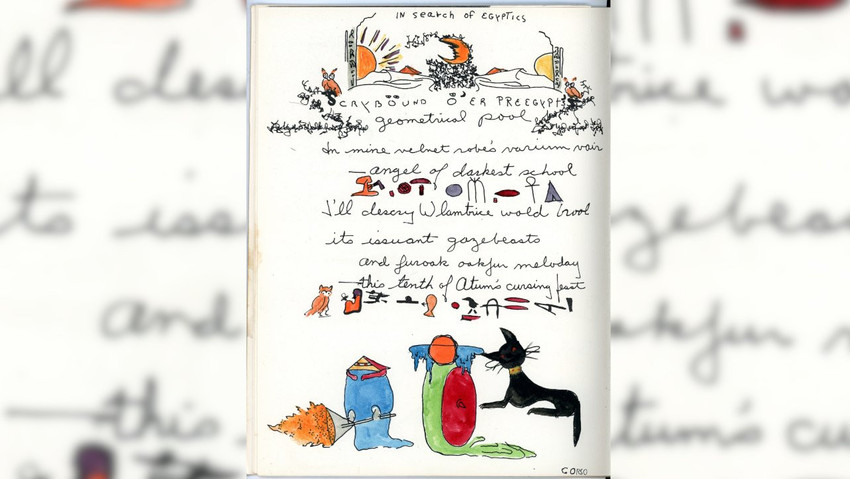 IN search of EGYPTICS
SCRYBOUND O'ER PREEGYPT
geometrical pool
In mine velvet robe's varium vair
—angel of darkest school
I'll descry wold brool
its issuant gazebeasts
and furoak oakfur meloday
—this tenth of Atum's cursing feast
CORSO